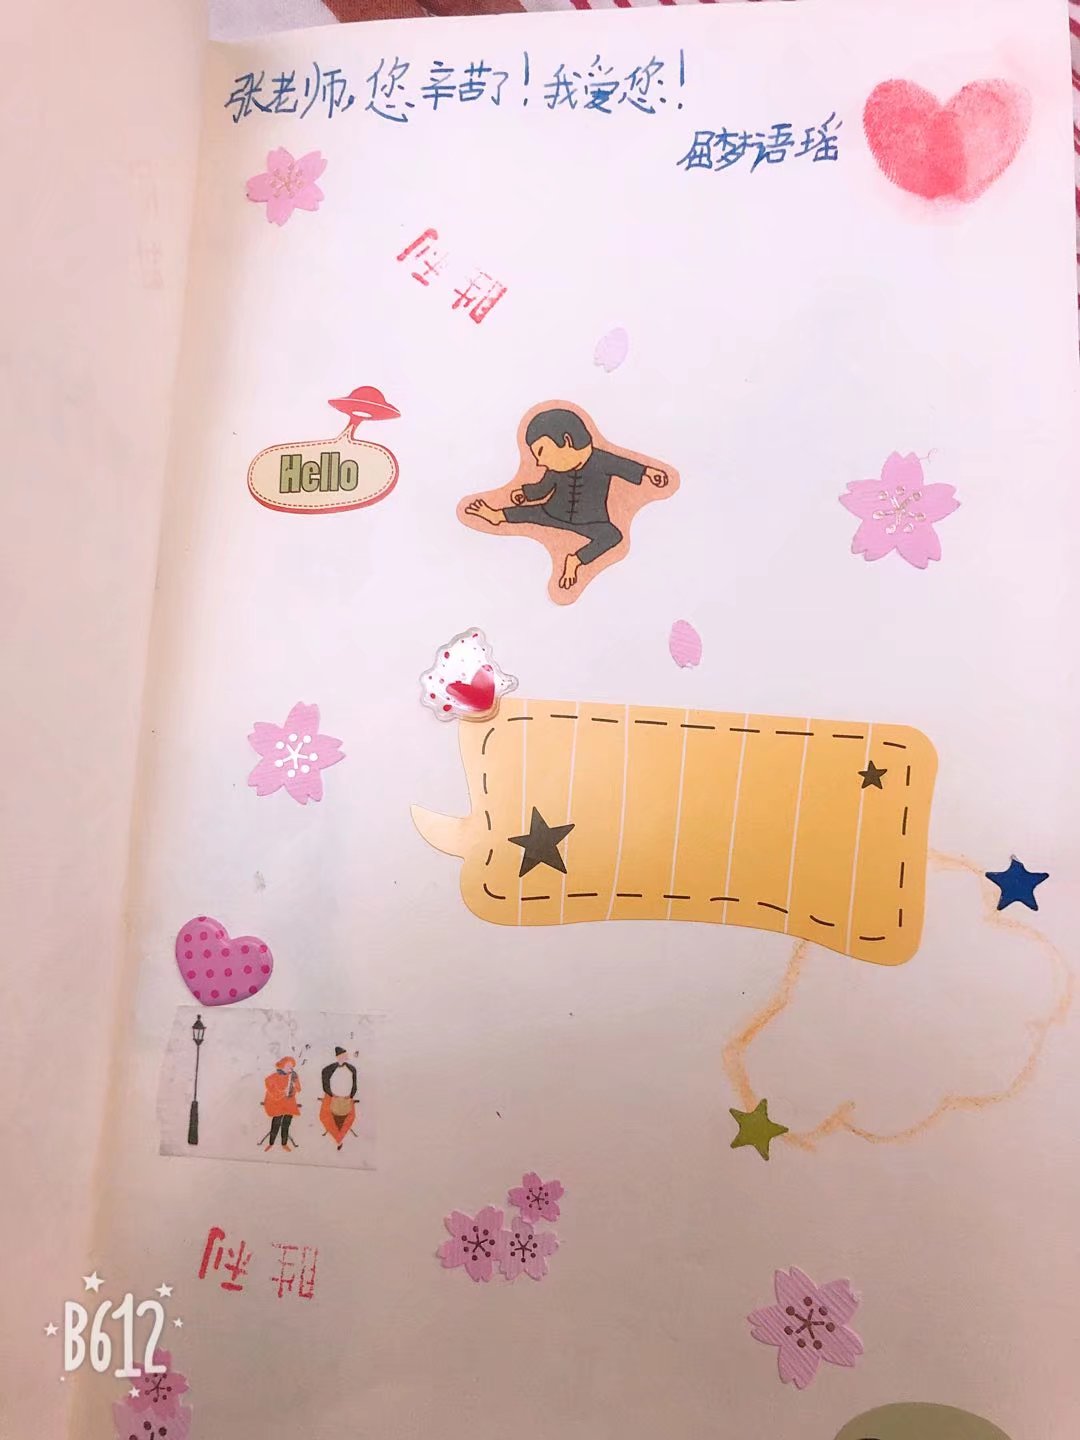 张老师，您辛苦了！我爱您！
屈梦语瑶
胜利
Hello
胜利
B612